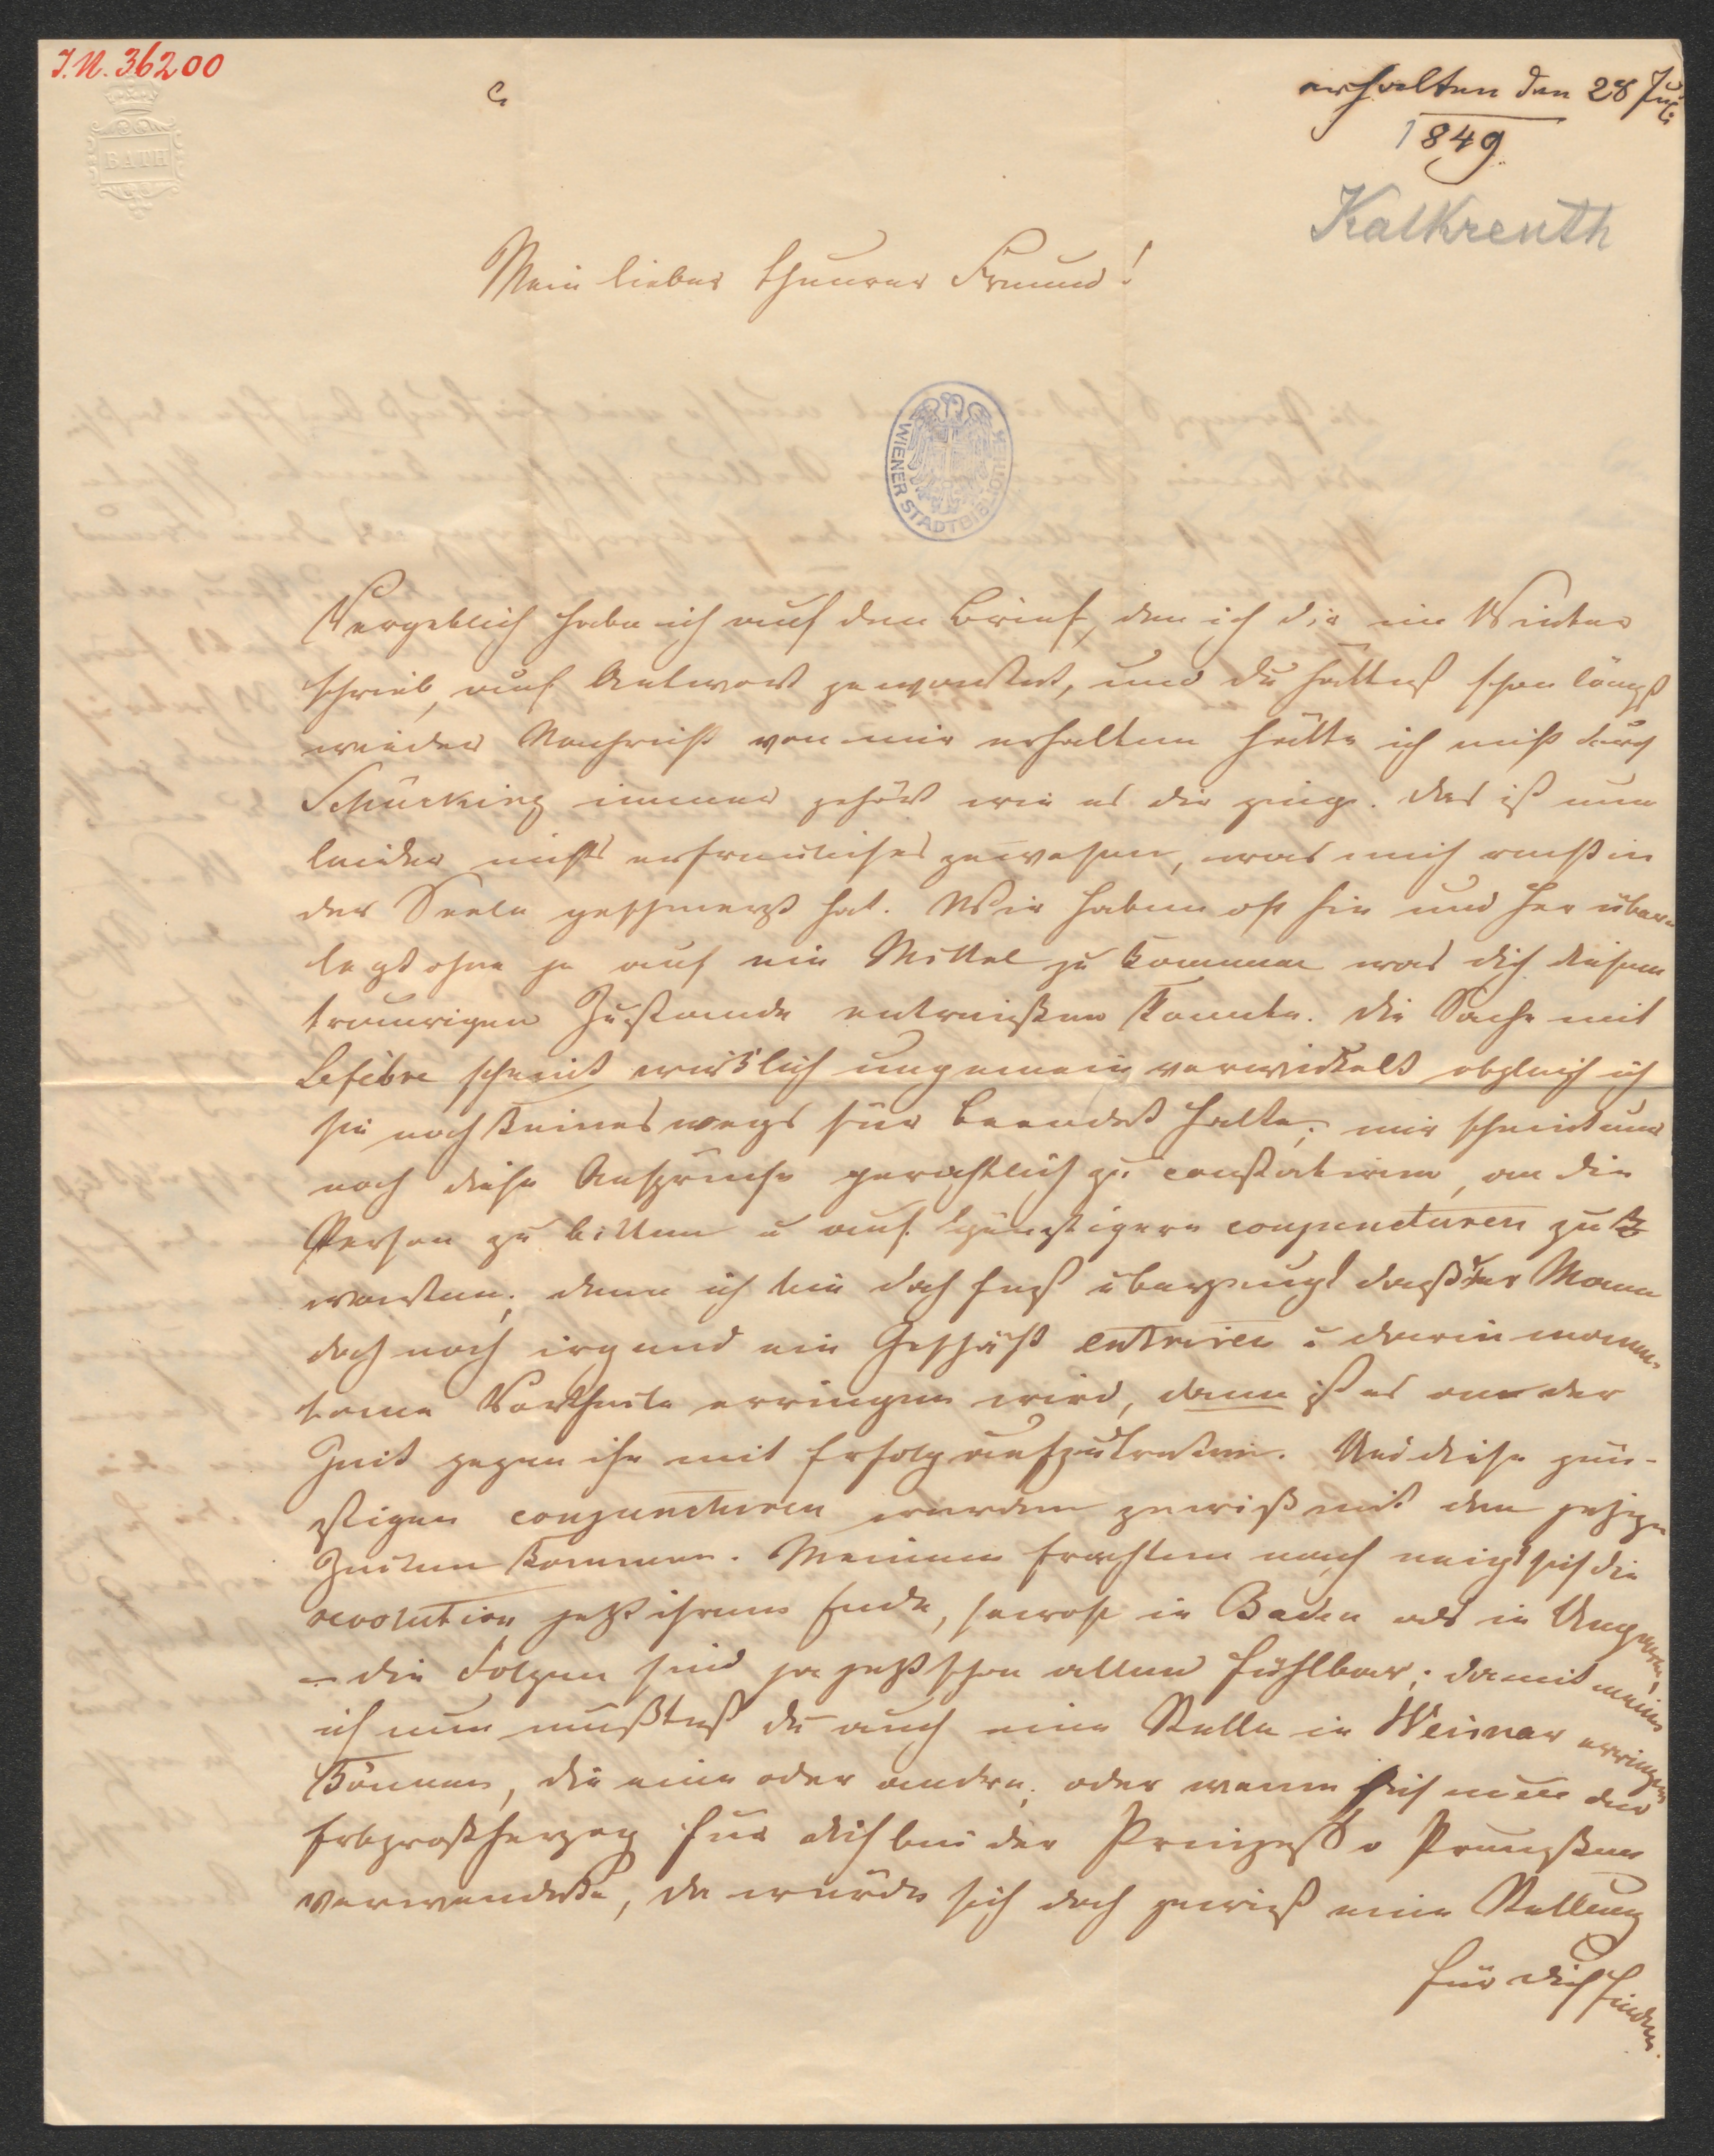 I.N. 36200
BATH
erhalten den 28 Juli
1849
Kalkreuth
Mein lieber theurer Freund!
WIENER STADTBIBLIOTHEK
Vergeblich habe ich auf den Brief, den ich dir im Winter
schrieb, auf Antwort gewartet, und du hättest schon längst
wieder Nachricht von mir erhalten hätte ich nicht durch
Schücking immer gehört wie es dir ginge. Das ist nun
leider nichts erfreuliches gewesen, was mich recht in
der Seele geschmerzt hat. Wir haben oft hin und her über
legt ohne je auf ein Mittel zu kommen was dich diesem
traurigen Zustande entreißen konnte. Die Sache mit
Lefèbre scheint wirklich ungemein verwickelt obgleich ich
sie noch keineswegs für beendet halte; mir scheint nur
noch diese Ansprüche gerichtlich zu constatiren, an die
Person zu bitten u auf günstigere conjuncturen zu
warten; denn ich bin doch fest überzeugt daß der Mann
doch noch irgend ein Geschäft entriren u darin momen-
tane Vortheile erringen wird, dann ist es an der
Zeit gegen ihn mit Erfolg aufzutreten. Und diese gün-
stigen conjuncturen werden gewiß mit den jetzigen
Zeiten kommen. Meinem Erachten nach neigt sich die
revolution jetzt ihrem Ende, sowohl in Baden als in Ungarn,
– die Folgen sind ja jetzt schon allen fühlbar; damit meine
ich nun mußtest du auch eine Stelle in Weimar erringen
können, die eine oder andre; oder wenn sich nun der
Erbgroßherzog für dich bei der Prinzeß v Preußen
verwendete, da würde sich doch gewiß eine Stellung
für dich finden.